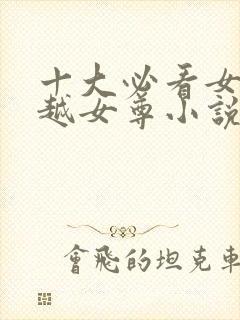 十大必看女
越女尊小說
會飛的坦克車